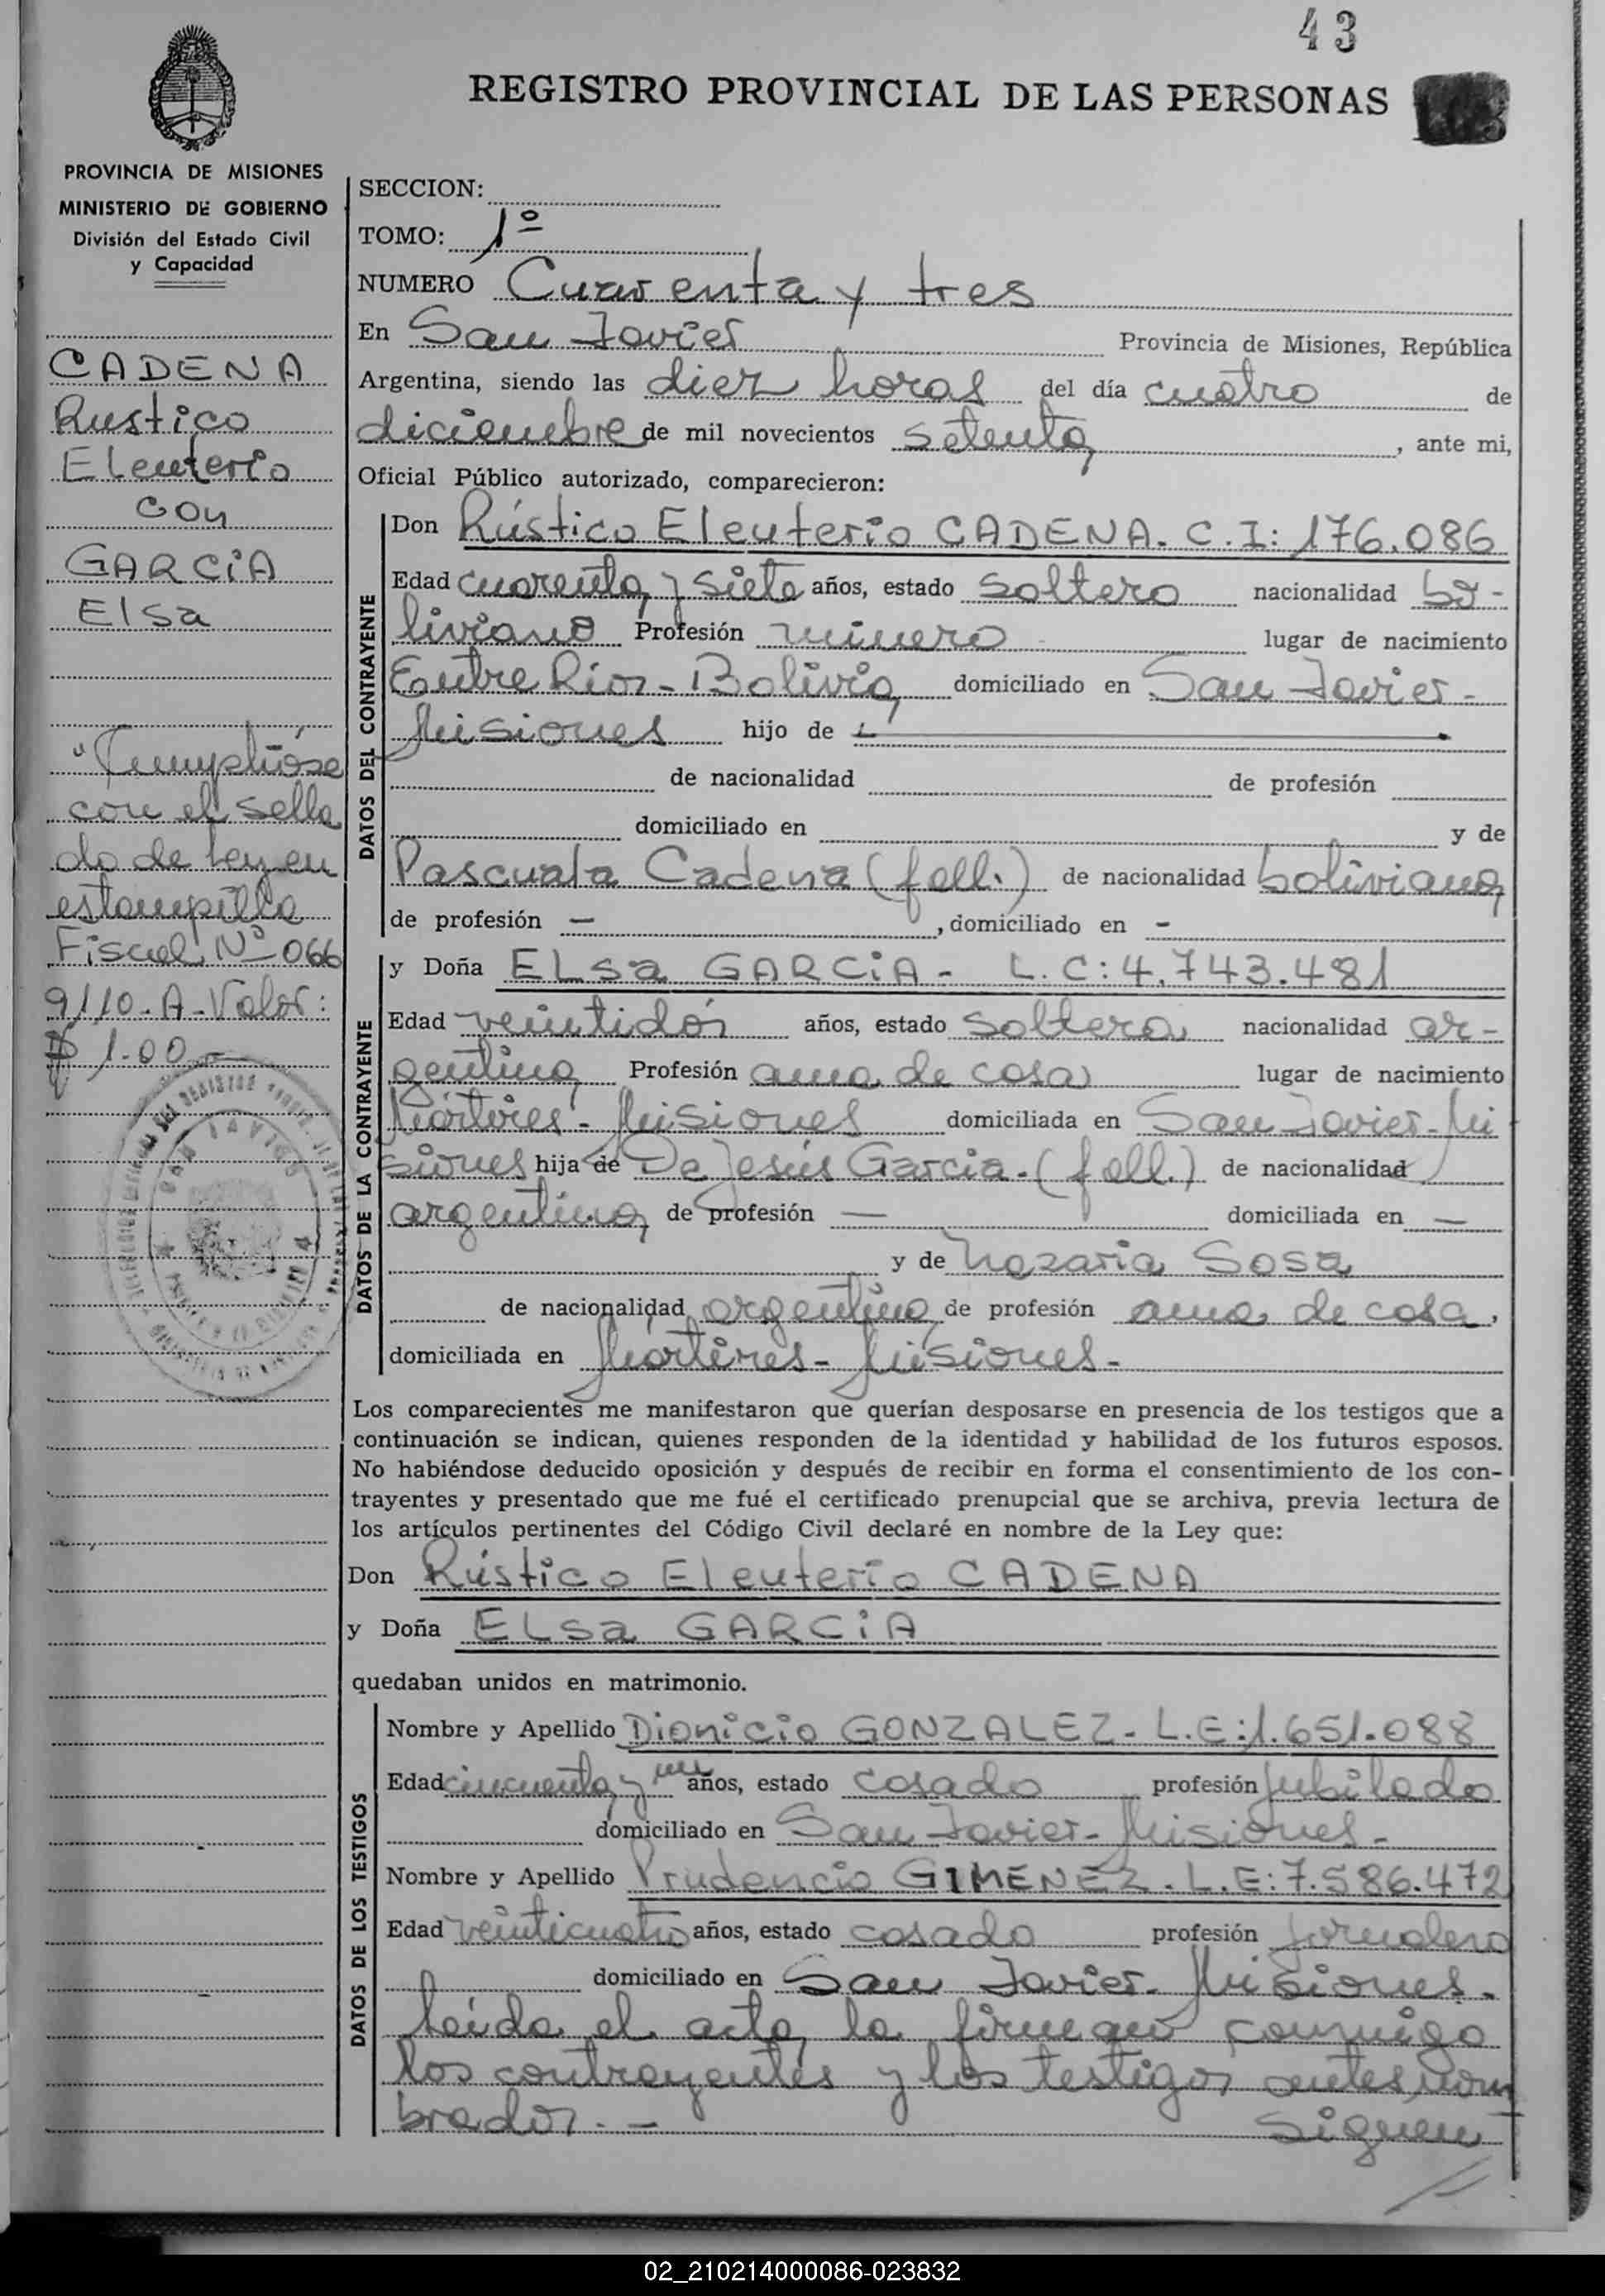 43
REGISTRO PROVINCIAL DE LAS PERSONAS
PROVINCIA DE MISIONES
MINISTERIO DE GOBIERNO
División del Estado Civil
y Capacidad
CADENA
Rustico
Eleuterio
con
GARCIA
Elsa
"Cumplióse
con el sella
do de Ley en
estampilla
Fiscal Nº 066
9110-A-Valor:
$ 1.00.-
SECCION:
TOMO: 1º
NUMERO Cuarenta y tres
En San Javier Provincia de Misiones, República
Argentina, siendo las diez horas del día cuatro de
diciembre de mil novecientos setenta, ante mi,
Oficial Público autorizado, comparecieron:
DATOS DEL CONTRAYENTE
Don Rústico Eleuterio CADENA. C.I: 176.086
Edad cuarenta y siete años, estado soltero nacionalidad bo-
liviano Profesión minero lugar de nacimiento
Entre Ríos-Bolivia domiciliado en San Javier-
Misiones hijo de
de nacionalidad de profesión
domiciliado en y de
Pascuala Cadena (fall.) de nacionalidad boliviana
de profesión — , domiciliado en -
DATOS DE LA CONTRAYENTE
y Doña ELSa GARCIA- L.C: 4.743.481
Edad veintidós años, estado soltera nacionalidad ar-
gentina Profesión ama de casa lugar de nacimiento
Mártires-Misiones domiciliada en San Javier-Mi
siones hija de De Jesús Garcia-(fall.) de nacionalidad
argentina de profesión — domiciliada en —
y de Nazaria Sosa
de nacionalidad argentina de profesión ama de casa,
domiciliada en Mártires- Misiones-
Los comparecientes me manifestaron que querían desposarse en presencia de los testigos que a
continuación se indican, quienes responden de la identidad y habilidad de los futuros esposos.
No habiéndose deducido oposición y después de recibir en forma el consentimiento de los con-
trayentes y presentado que me fué el certificado prenupcial que se archiva, previa lectura de
los artículos pertinentes del Código Civil declaré en nombre de la Ley que:
Don Rústico Eleuterio CADENA
y Doña ELSa GARCIA
quedaban unidos en matrimonio.
DATOS DE LOS TESTIGOS
Nombre y Apellido Dionicio GONZALEZ- L.E:1.651.088
Edad cincuenta y un años, estado casado profesión jubilado
domiciliado en San Javier- Misiones-
Nombre y Apellido Prudencio GIMENEZ. L.E: 7.586.472
Edad veinticuatro años, estado casado profesión jornalero
domiciliado en San Javier- Misiones-
leída el acta, la firman conmigo
los contrayentes y los testigos antes nom
brados.-
Siguen
02_210214000086-023832